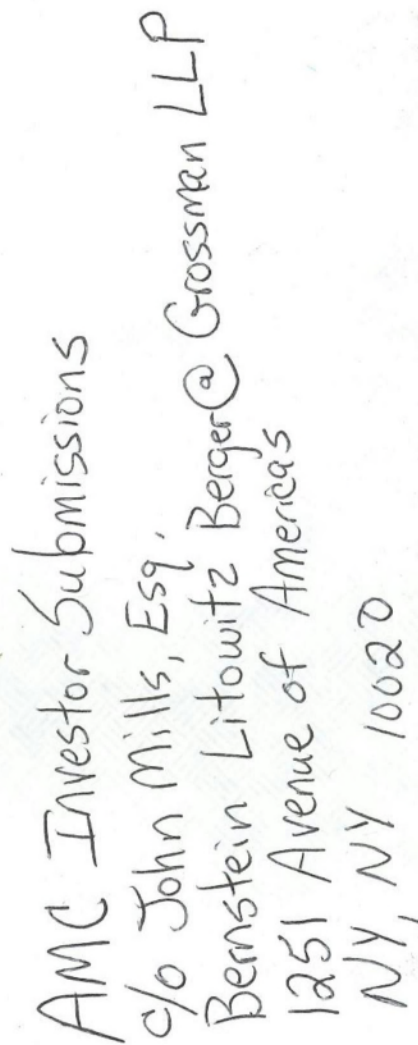 AMC Investor Submissions
c/o John Mills, Esq.
Bernstein Litowitz Berger @ Grossman LLP
1251 Avenue of Americas
NY, NY 10020